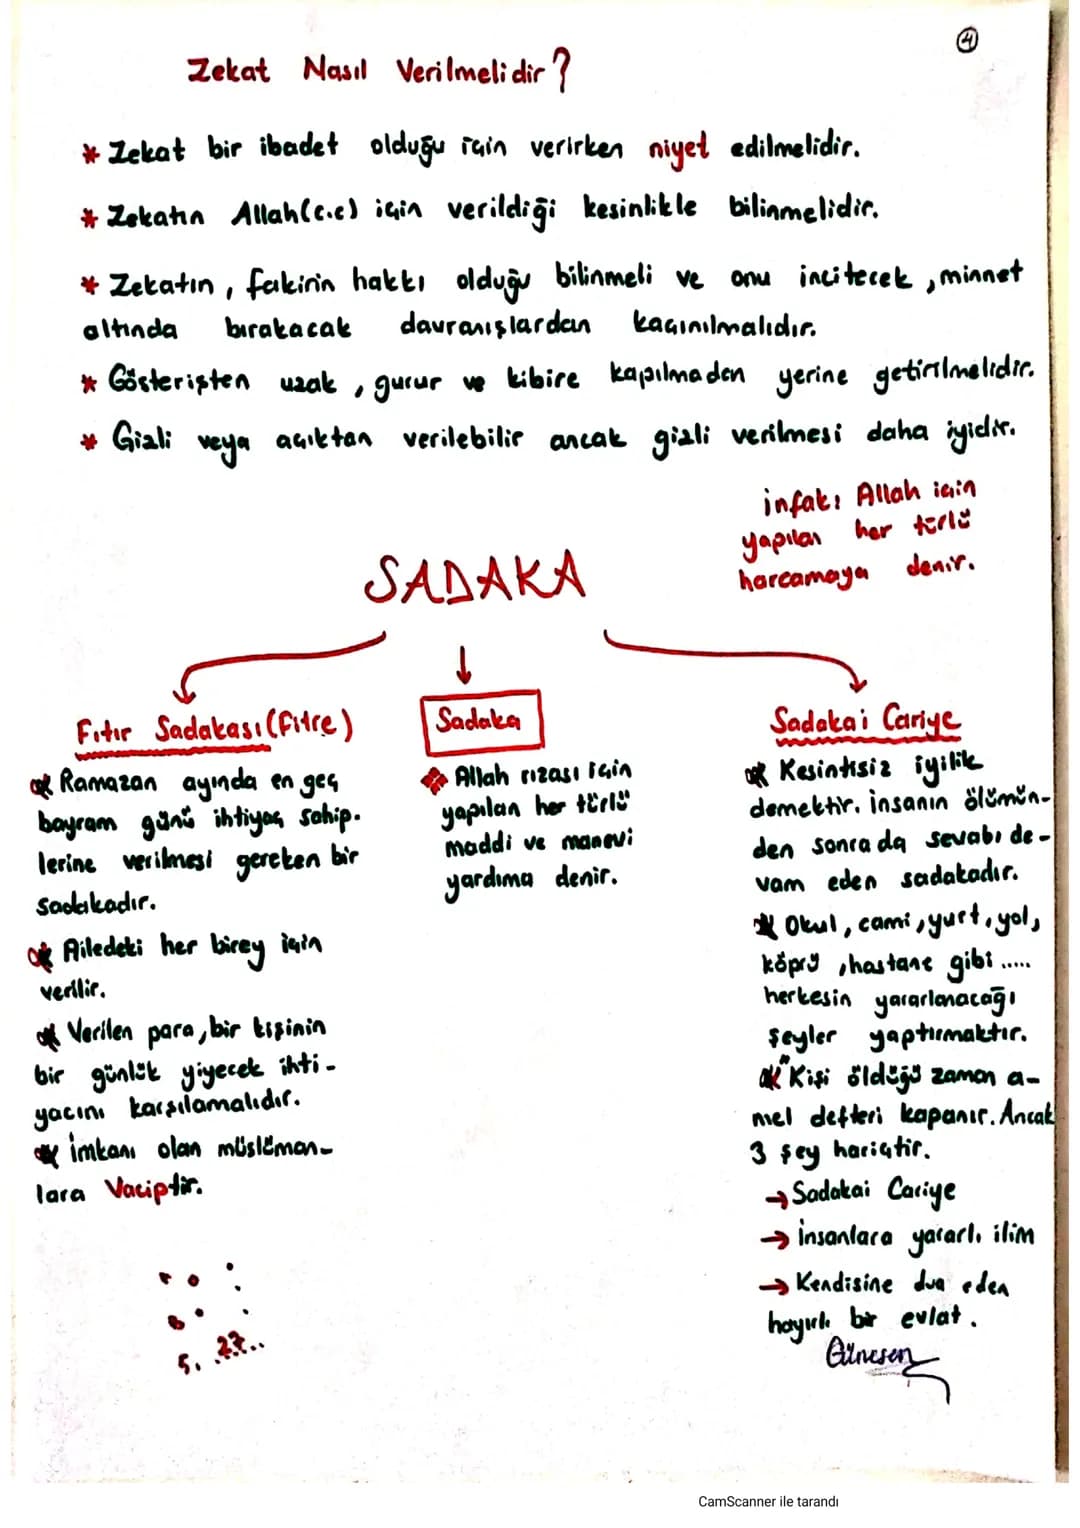 4
Zekat Nasıl Verilmelidir?
* Zekat bir ibadet olduğu için verirken niyet edilmelidir.
* Zekatın Allah(c.c) için verildiği kesinlikle bilinmelidir.
* Zekatın, fakirin hakkı olduğu bilinmeli ve onu incitecek, minnet
altında bırakacak davranışlardan kaçınılmalıdır.
* Gösterişten uzak, gurur ve kibire kapılmadan yerine getirilmelidir.
* Gizli veya açıktan verilebilir ancak gizli verilmesi daha iyidir.
infak: Allah için
yapılan her türlü
harcamaya denir.
SADAKA
Fıtır Sadakası (Fitre)
* Ramazan ayında en geç
bayram günü ihtiyaç sahip-
lerine verilmesi gereken bir
sadakadır.
* Ailedeki her birey için
verilir.
* Verilen para, bir kişinin
bir günlük yiyecek ihti-
yacını karşılamalıdır.
* İmkanı olan müslüman-
lara Vaciptir.
Sadaka
Allah rızası için
yapılan her türlü
maddi ve manevi
yardıma denir.
Sadakai Cariye
* Kesintisiz iyilik
demektir. İnsanın ölümün-
den sonra da sevabı de-
vam eden sadakadır.
* Okul, cami, yurt, yol,
köprü, hastane gibi .....
herkesin yararlanacağı
şeyler yaptırmaktır.
* "Kişi öldüğü zaman a-
mel defteri kapanır. Ancak
3 şey hariçtir.
→ Sadakai Cariye
→ İnsanlara yararlı ilim
→ Kendisine dua eden
hayırlı bir evlat.
Günesen
CamScanner ile tarandı